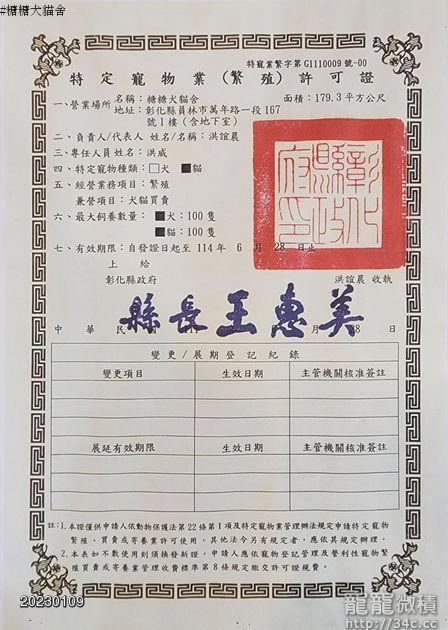 #糖糖犬貓舍
特寵業繁字第G1110009號-00
特定寵物業(繁殖)許可證
一、營業場所 名稱:糖糖犬貓舍 面積:179.3平方公尺
地址:彰化縣員林市萬年路一段167
號1樓(含地下室)
二、負責人/代表人 姓名/名稱:洪誼晨
三、專任人員姓名:洪威
四、特定寵物種類:□犬 ■貓
五、經營業務項目:繁殖
兼營項目:犬貓買賣
六、最大飼養數量:■犬:100隻
■貓:100隻
七、有效期限:自發證日起至114年 6 月 28 日止
上 給
彰化縣政府 洪誼晨 收執
彰化縣政府印
縣長王惠美
中 華 民 月 28 日
變更/展期登記紀錄
變更項目 生效日期 主管機關核准簽註
展延有效期限 生效日期 主管機關核准簽註
註:1.本證僅供申請人依動物保護法第22條第1項及特定寵物業管理辦法規定申請特定寵物
繁殖、買賣或寄養業許可使用,其他法令另有規定者,應依其規定辦理。
2.本表如不敷使用則須換發新證,申請人應依寵物登記管理及營利性寵物繁
殖買賣或寄養業管理收費標準第8條規定繳交許可證規費。
20230109
龍龍微積
http://34c.cc